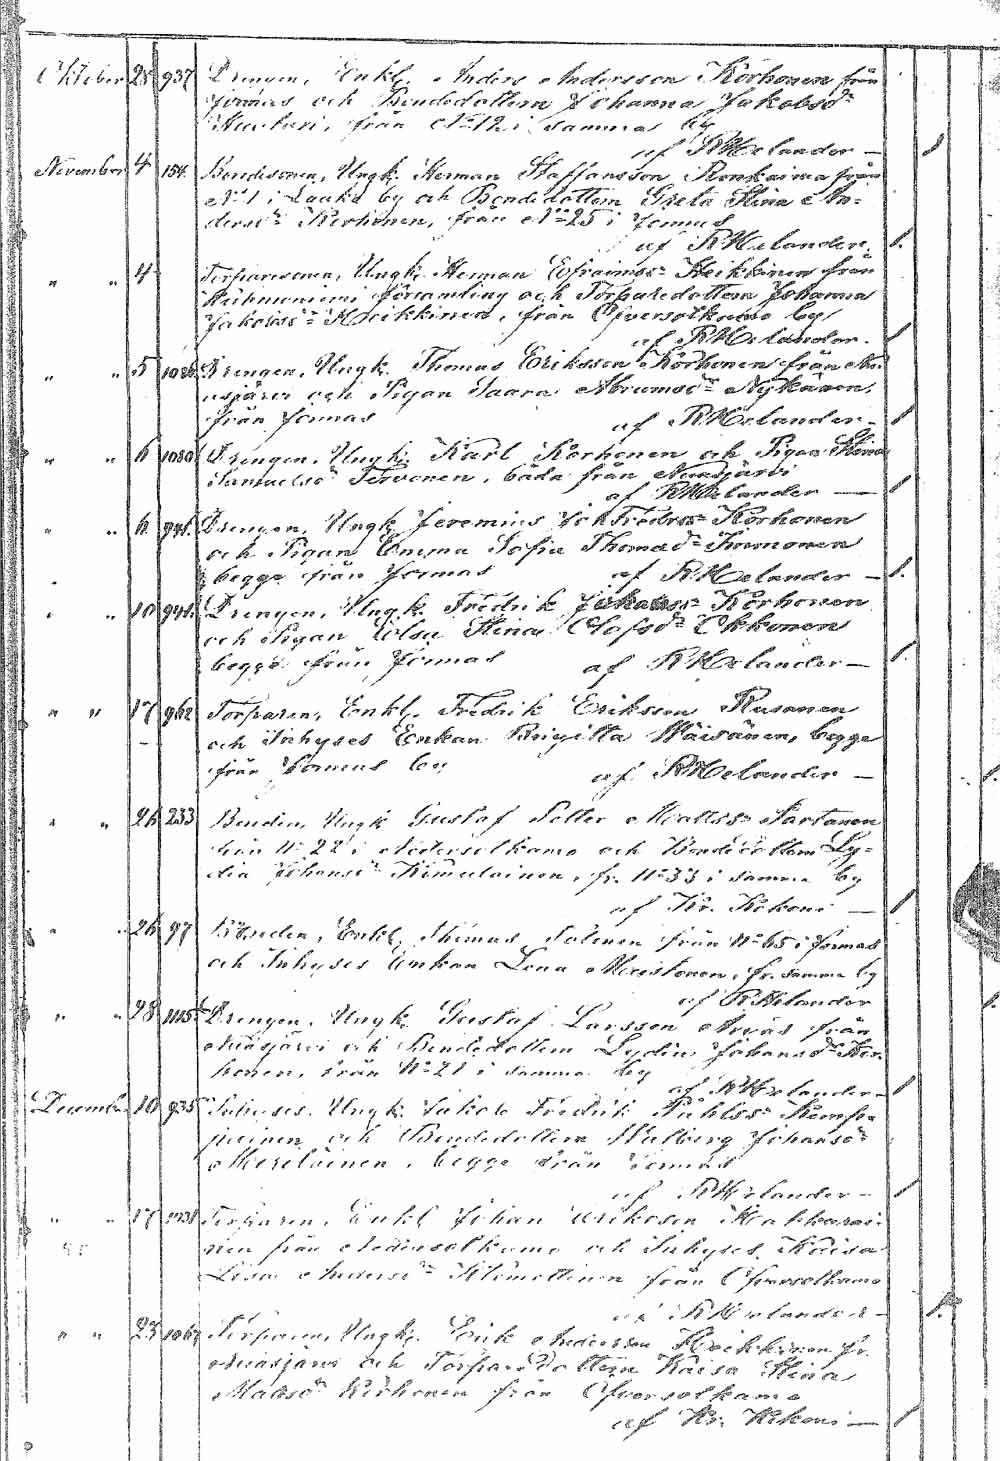 Oktober 28 937 Drengen, Enkl. Anders Andersson Korhonen från
Jormas och Bondedottern Johanna Jakobsdr
från No 12 i samma by
af RHelander —
November 4 154 Bondesonen, Ungk. Herman Staffansson Ronkaina från
No 1 i by och Bondedottern Greta Stina An-
dersdr Korhonen, från No 25 i Jormas
af RHelander.
" " 4 Torparesonen, Ungk. Herman Efraimss. Heikkinen från
församling och Torparedottern Johanna
Jakobsdr Heikkinen, från Öfversotkamo by
af RHelander.
" " 5 Drengen, Ungk. Thomas Eriksson Korhonen från Nu-
asjärvi och Pigan Saara Abramsdr Nykänen,
från Jormas
af RHelander —
" " 6 1080 Drengen, Ungk. Karl Korhonen och Pigan Stina
Samuelsd Tervonen, båda från Nuasjärvi
af RHelander —
" " 6 941 Drengen, Ungk. Jeremias Joh Fredrss. Korhonen
och Pigan Emma Sofia Thomasdr Immonen
begge från Jormas af RHelander —
" " 10 941 Drengen, Ungk. Fredrik Jakobss. Korhonen
och Pigan Elsa Stina Olofsdr Okkonen
begge från Jormas af RHelander —
" " 17 962 Torparen, Enkl. Fredrik Eriksson Rusanen
och Inhyses Enkan Brigitta Wäisänen, begge
från Jormas by af RHelander —
" " 26 233 Bonden, Ungk. Gustaf Petter Mattss. Partanen
från No 22 i Nedersotkamo och Bondedottern Ly-
dia Johansdr Kimulainen, fr. No 33 i samma by
af Kr. Kekoni —
" " 26 97 Bonden, Enkl. Thomas Tolonen från No 65 i Jormas
och Inhyses Enkan Lena Mustonen, fr. samma by
af RHelander
" " 28 1115 Drengen, Ungk. Gustaf Larsson från
Nuasjärvi och Bondedottern Lydia Johansdr Kor-
honen, från No 21 i samma by
af RHelander —
December 10 935 Inhyses, Ungk. Jakob Fredrik Påhlss. Kemp-
painen och Bondedottern Walborg Johansdr
Meriläinen, begge från Jormas
af RHelander —
" " 17 Torparen, Enkl. Johan Eriksson Makkarai-
nen från Nedersotkamo och Inhyses Kaisa
Lisa Andersdr Klemettinen från Öfversotkamo
af RHelander —
" " 23 Torparen, Ungk. Erik Andersson Heikkinen fr.
Nuasjärvi och Torparedottern Kaisa Stina
Matsdr Korhonen från Öfversotkamo
af Kr. Kekoni —